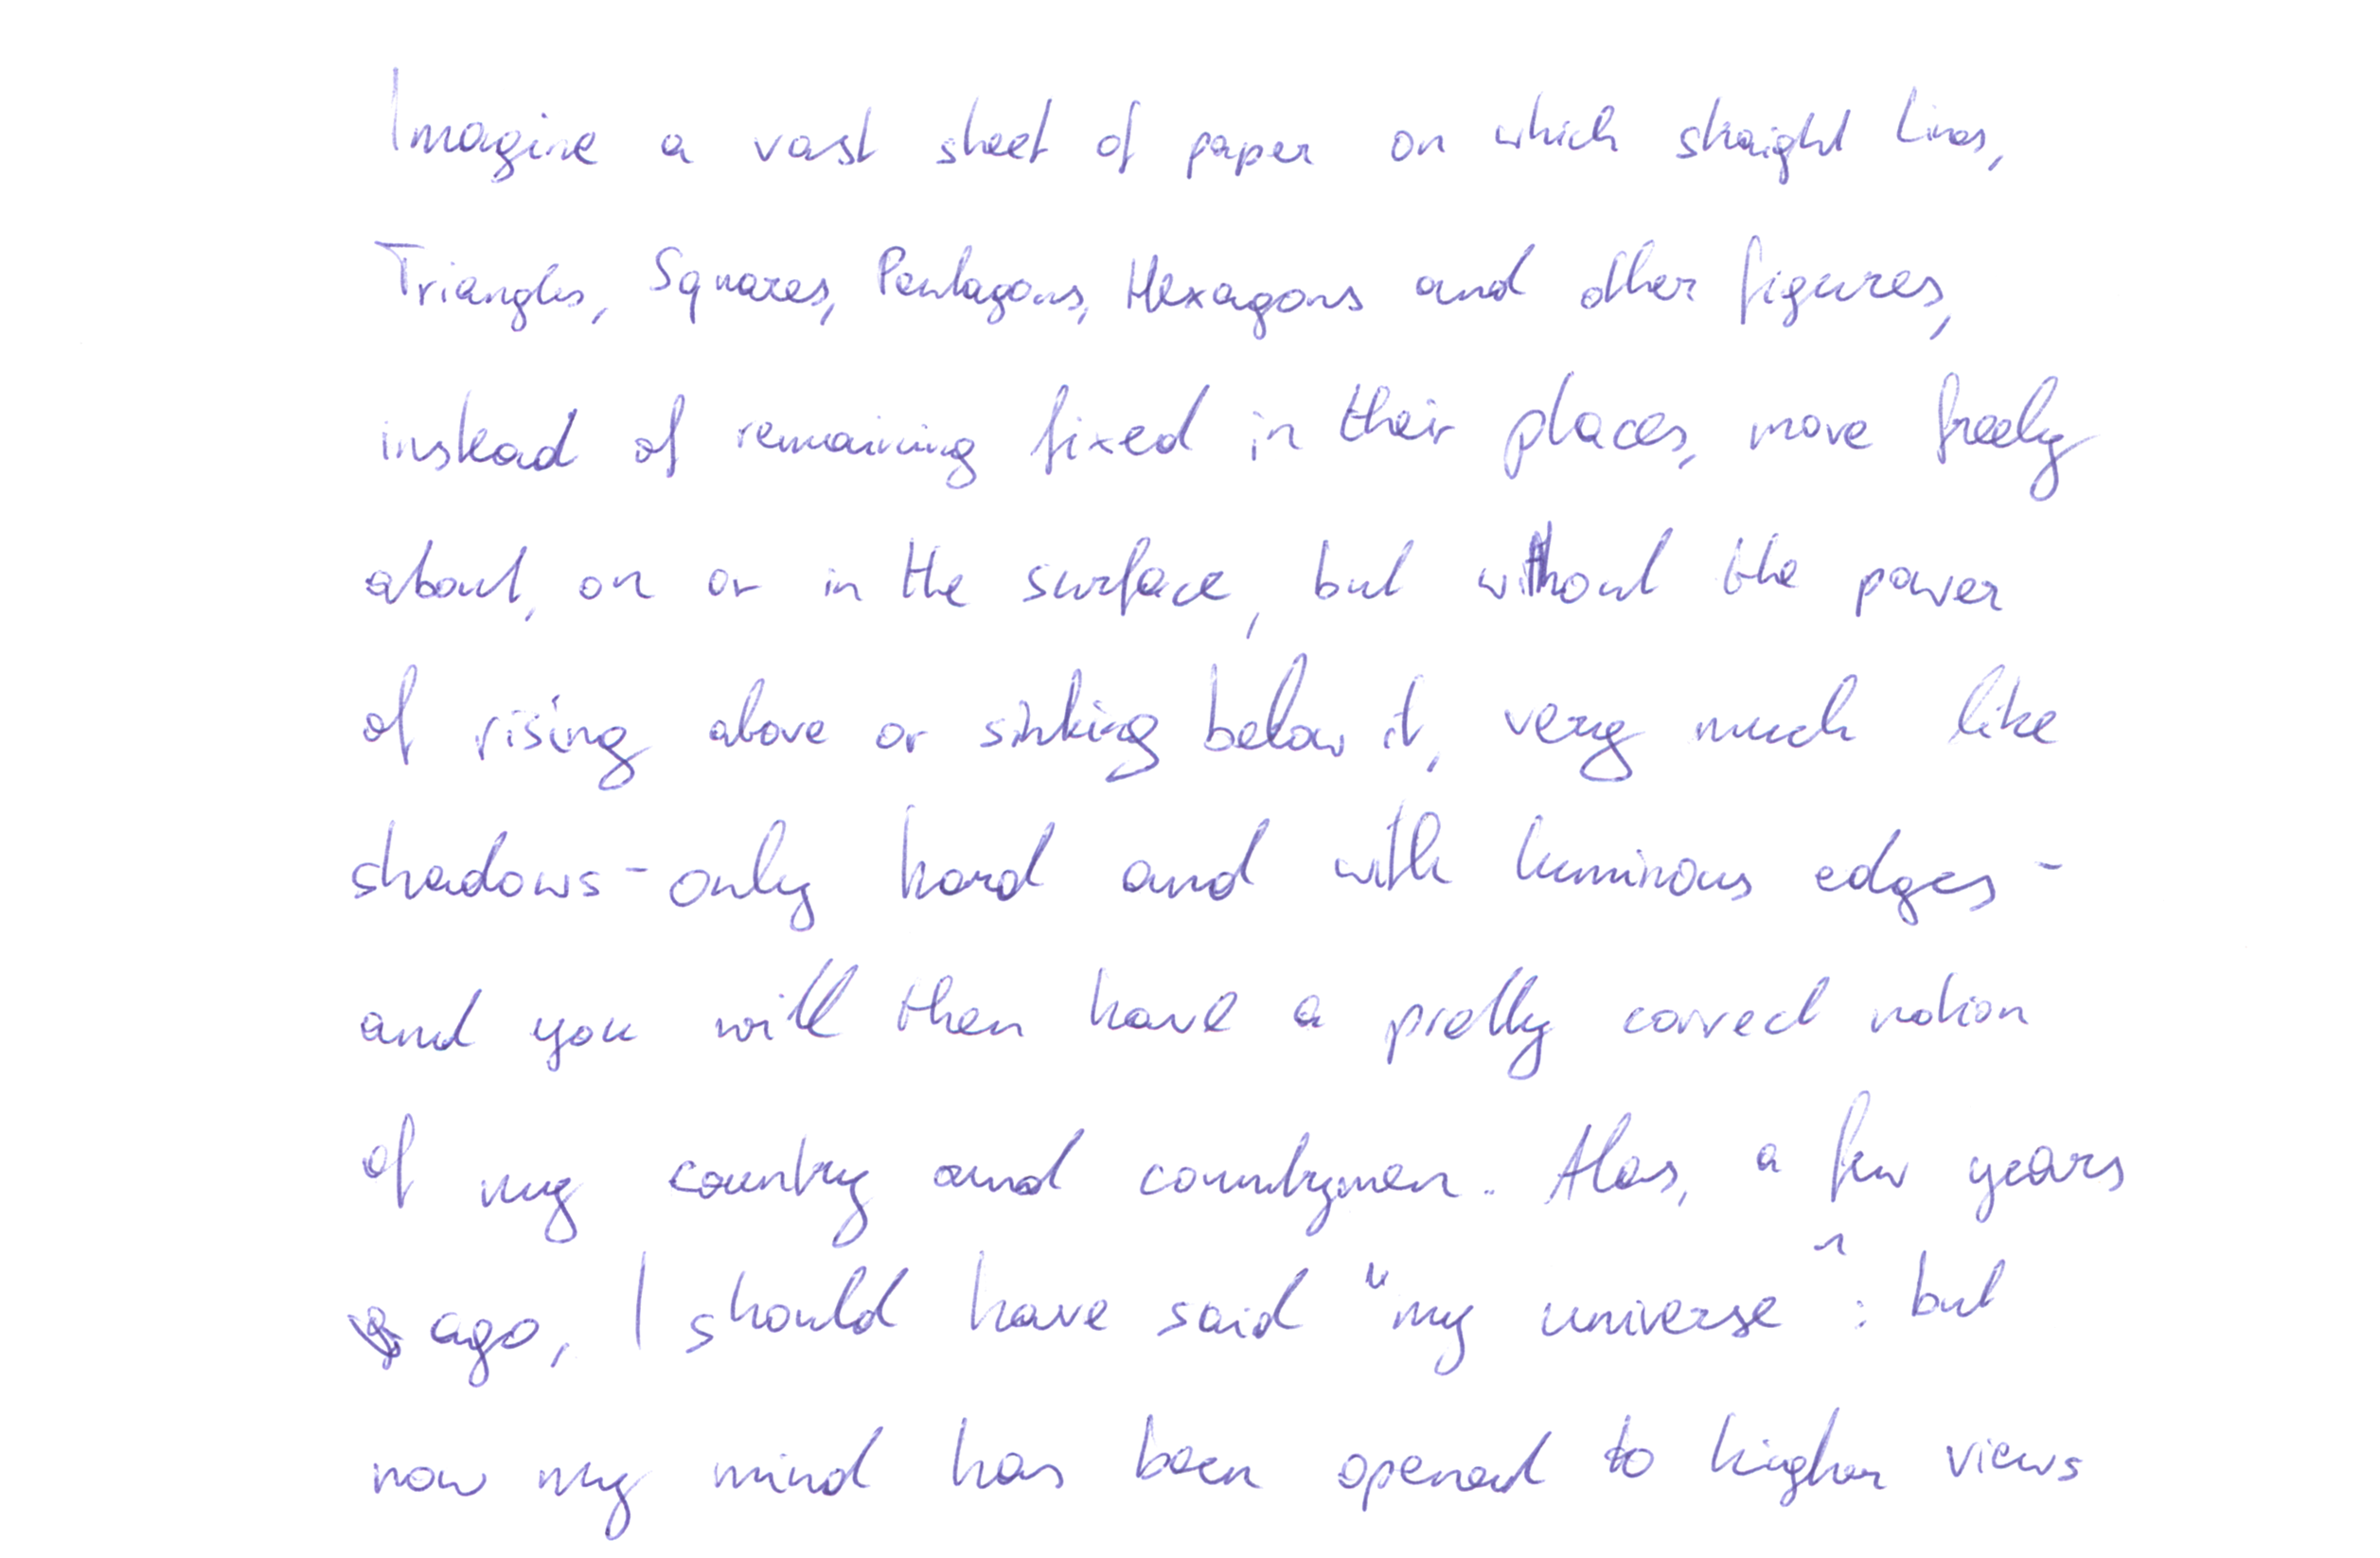 Imagine a vast sheet of paper on which straight Lines,
Triangles, Squares, Pentagons, Hexagons and other figures,
instead of remaining fixed in their places, move freely
about, on or in the surface, but without the power
of rising above or sinking below it, very much like
shadows - only hard and with luminous edges -
and you will then have a pretty correct notion
of my country and countrymen. Alas, a few years
ago, I should have said "my universe": but
now my mind has been opened to higher views